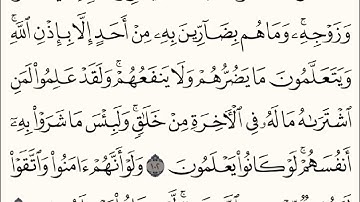 وَزَوْجِهِۦۚ وَمَا هُم بِضَآرِّينَ بِهِۦ مِنْ أَحَدٍ إِلَّا بِإِذْنِ ٱللَّهِۚ
وَيَتَعَلَّمُونَ مَا يَضُرُّهُمْ وَلَا يَنفَعُهُمْۚ وَلَقَدْ عَلِمُوا۟ لَمَنِ
ٱشْتَرَىٰهُ مَا لَهُۥ فِى ٱلْـَٔاخِرَةِ مِنْ خَلَٰقٍۚ وَلَبِئْسَ مَا شَرَوْا۟ بِهِۦٓ
أَنفُسَهُمْۚ لَوْ كَانُوا۟ يَعْلَمُونَ ١٠٢ وَلَوْ أَنَّهُمْ ءَامَنُوا۟ وَٱتَّقَوْا۟